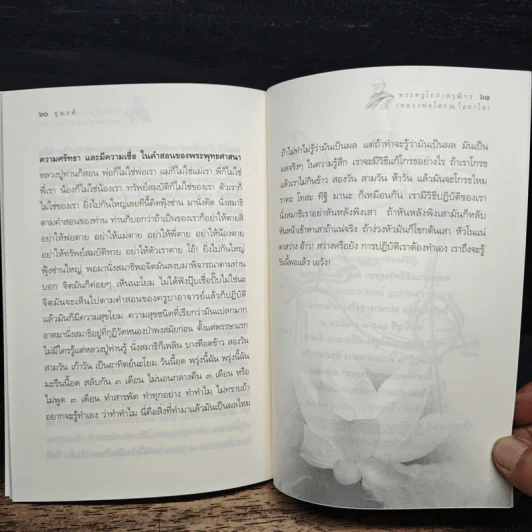 ๖๐ ธุดงค์
ความศรัทธา และมีความเชื่อ ในคำสอนของพระพุทธศาสนา
หลวงปู่ท่านก็สอน พ่อก็ไม่ใช่พ่อเรา แม่ก็ไม่ใช่แม่เรา พี่ก็ไม่ใช่
พี่เรา น้องก็ไม่ใช่น้องเรา ทรัพย์สมบัติก็ไม่ใช่ของเรา ตัวเราก็
ไม่ใช่ของเรา ยิ่งไปกันใหญ่เลยทีนี้คิดฟุ้งซ่าน มานั่งคิด นั่งสมาธิ
ตามคำสอนของท่าน ท่านก็บอกว่าถ้าเป็นของเราก็อย่าให้ตายสิ
อย่าให้พ่อตาย อย่าให้แม่ตาย อย่าให้พี่ตาย อย่าให้น้องตาย
อย่าให้ทรัพย์สมบัติตาย อย่าให้ตัวเราตาย โอ้! ยิ่งไปกันใหญ่
ฟุ้งซ่านใหญ่ พอมานั่งสมาธิพอจิตมันสงบมาพิจารณาตามท่าน
บอก จิตมันก็ค่อยๆ เห็นนะโยม ไม่ได้ฟังปุ๊บเชื่อปั๊บไม่ใช่นะ
จิตมันจะเห็นไปตามคำสอนของครูบาอาจารย์แล้วก็ปฏิบัติ
แล้วมันก็มีความสุขโยม ความสุขชนิดที่เรียกว่ามันแปลกมาก
อาตมานั่งสมาธิอยู่ที่กุฏิวัดหนองป่าพงสมัยก่อน ตั้งแต่พรรษาแรก
ไม่มีใครรู้แต่หลวงปู่ท่านรู้ นั่งสมาธิก็เพลิน บางทีอดข้าว สองวัน
สามวัน เก้าวัน เป็นอาทิตย์นะโยม วันนี้อด พรุ่งนี้ฉัน พรุ่งนี้ฉัน
มะรืนนี้อด สลับกัน ๓ เดือน ไม่นอนกลางคืน ๓ เดือน หรือ
ไม่พูด ๓ เดือน ทำสารพัด ทำทุกอย่าง ทำทำไม ไม่ทราบถ้า
อยากจะรู้ทำเอง ว่าทำทำไม นี่คือสิ่งที่ทำมาแล้วมันเป็นผลไหม
พระครูโอภาสวุฒิกร ๖๑
(หลวงพ่อโสภณ โอภาโส)
ถ้าไม่ทำไม่รู้ว่ามันเป็นผล แต่ถ้าทำจะรู้ว่ามันเป็นผล มันเป็น
ผลจริงๆ ในความรู้สึก เราจะมีวิธีแก้โกรธอย่างไร ถ้าเราโกรธ
แล้วเราไม่กินข้าว สองวัน สามวัน ห้าวัน แล้วมันจะโกรธไหม
ราคะ โทสะ ทิฐิ มานะ ก็เหมือนกัน เรามีวิธีปฏิบัติของเรา
นั่งสมาธิเราอย่าหันหลังพิงเสา ถ้าหันหลังพิงเสามันก็หลับ
หันหน้าเข้าหาเสาถ้าแน่จริง ถ้าง่วงหัวมันก็โขกต้นเสา หัวโนแน่
ตาสว่าง อ้าว! สว่างหรือยัง การปฏิบัติเราต้องทำเอง เราถึงจะรู้
วันนี้พอแล้ว เอวัง!